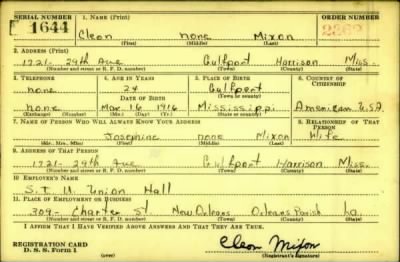 SERIAL NUMBER 1. NAME (Print) ORDER NUMBER
1644 Cleon none Mixon
(First) (Middle) (Last)
2. ADDRESS (Print)
1721- 29th Ave Gulfport Harrison Miss.
(Number and street or R. F. D. number) (Town) (County) (State)
3. TELEPHONE 4. AGE IN YEARS 5. PLACE OF BIRTH 6. COUNTRY OF CITIZENSHIP
none 24 Gulfport
DATE OF BIRTH (Town or county)
none Mar. 16 1916 Mississippi American U.S.A
(Exchange) (Number) (Mo.) (Day) (Yr.) (State or country)
7. NAME OF PERSON WHO WILL ALWAYS KNOW YOUR ADDRESS 8. RELATIONSHIP OF THAT PERSON
Josephine none Mixon Wife
(Mr., Mrs., Miss) (First) (Middle) (Last)
9. ADDRESS OF THAT PERSON
1721- 29th Ave Gulfport Harrison Miss.
(Number and street or R. F. D. number) (Town) (County) (State)
10. EMPLOYER'S NAME
S. I. U. Union Hall
11. PLACE OF EMPLOYMENT OR BUSINESS
309- Charter St New Orleans Orleans Parish La.
(Number and street or R. F. D. number) (Town) (County) (State)
I AFFIRM THAT I HAVE VERIFIED ABOVE ANSWERS AND THAT THEY ARE TRUE.
REGISTRATION CARD
D. S. S. Form 1 (over) Cleon Mixon
(Registrant's signature)